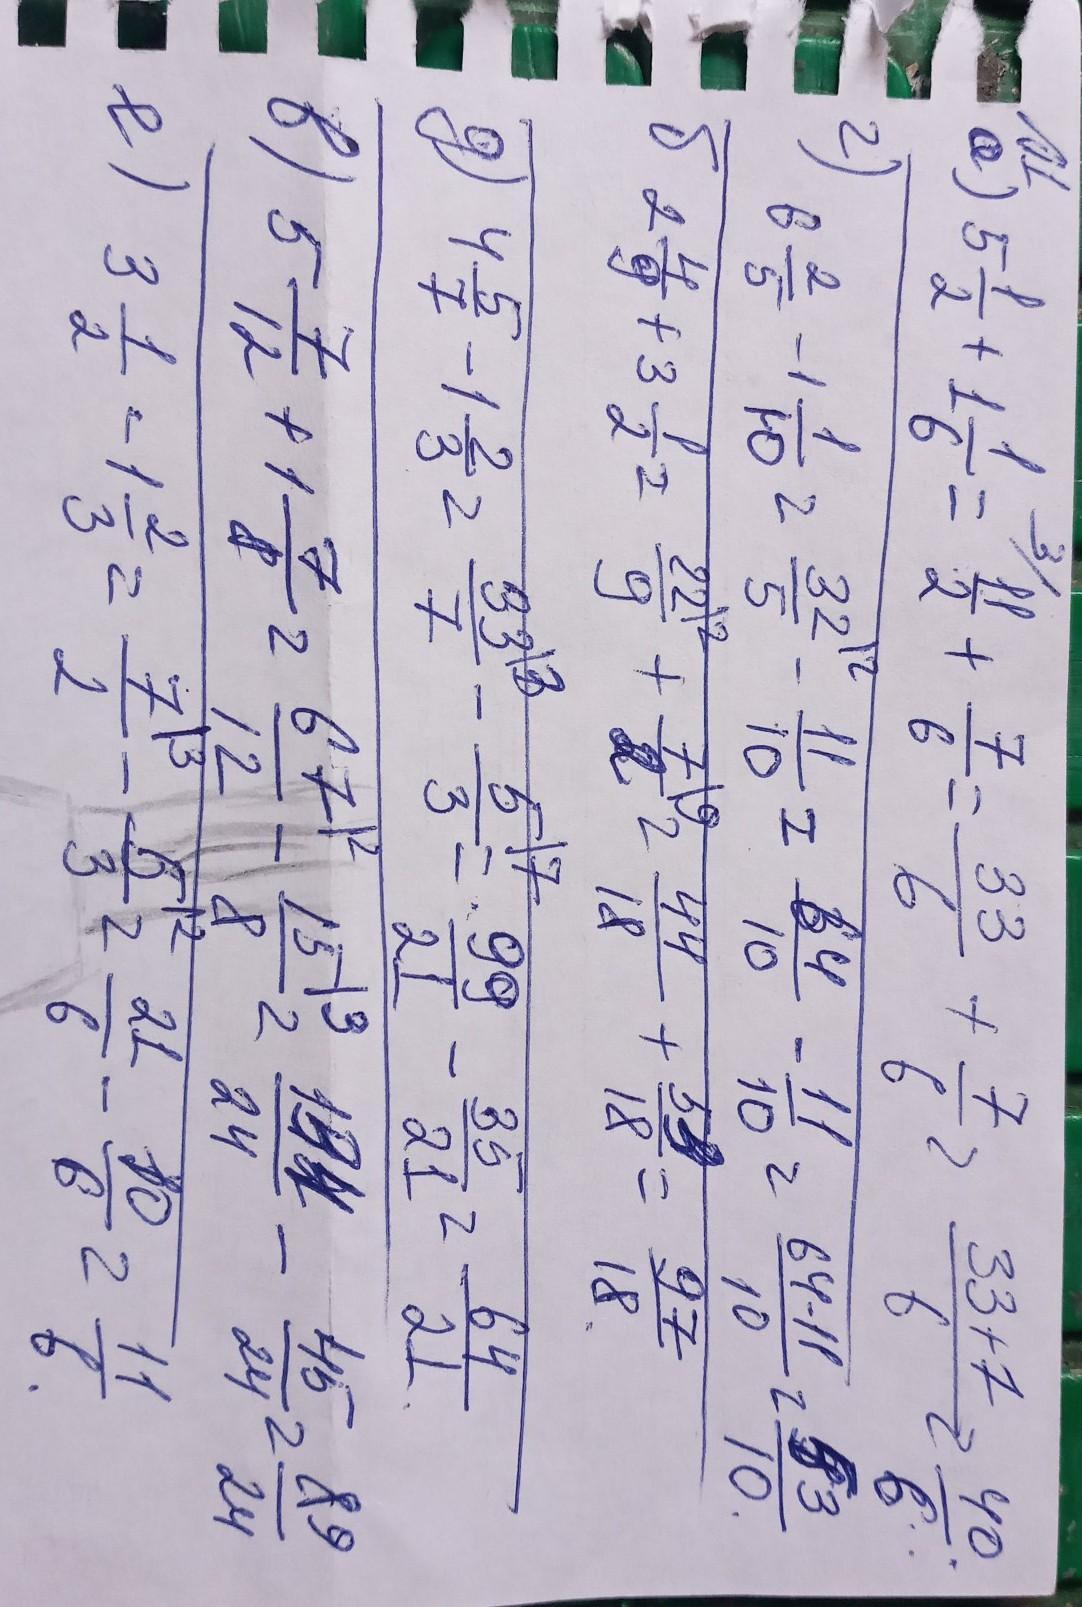 №1
а) 5 1/2 + 1 1/6 = 11/2 3/ + 7/6 = 33/6 + 7/6 = 33+7/6 = 40/6.
г) 6 2/5 - 1 1/10 = 32/5 |2 - 11/10 = 64/10 - 11/10 = 64-11/10 = 53/10.
б 2 4/9 + 3 1/2 = 22/9 |2 + 7/2 |9 = 44/18 + 53/18 = 97/18.
д) 4 5/7 - 1 2/3 = 33/7 |3 - 5/3 |7 = 99/21 - 35/21 = 64/21.
в) 5 7/12 + 1 7/8 = 67/12 |2 - 15/8 |3 = 134/24 - 45/24 = 89/24
е) 3 1/2 - 1 2/3 = 7/2 |3 - 5/3 |2 = 21/6 - 10/6 = 11/6.